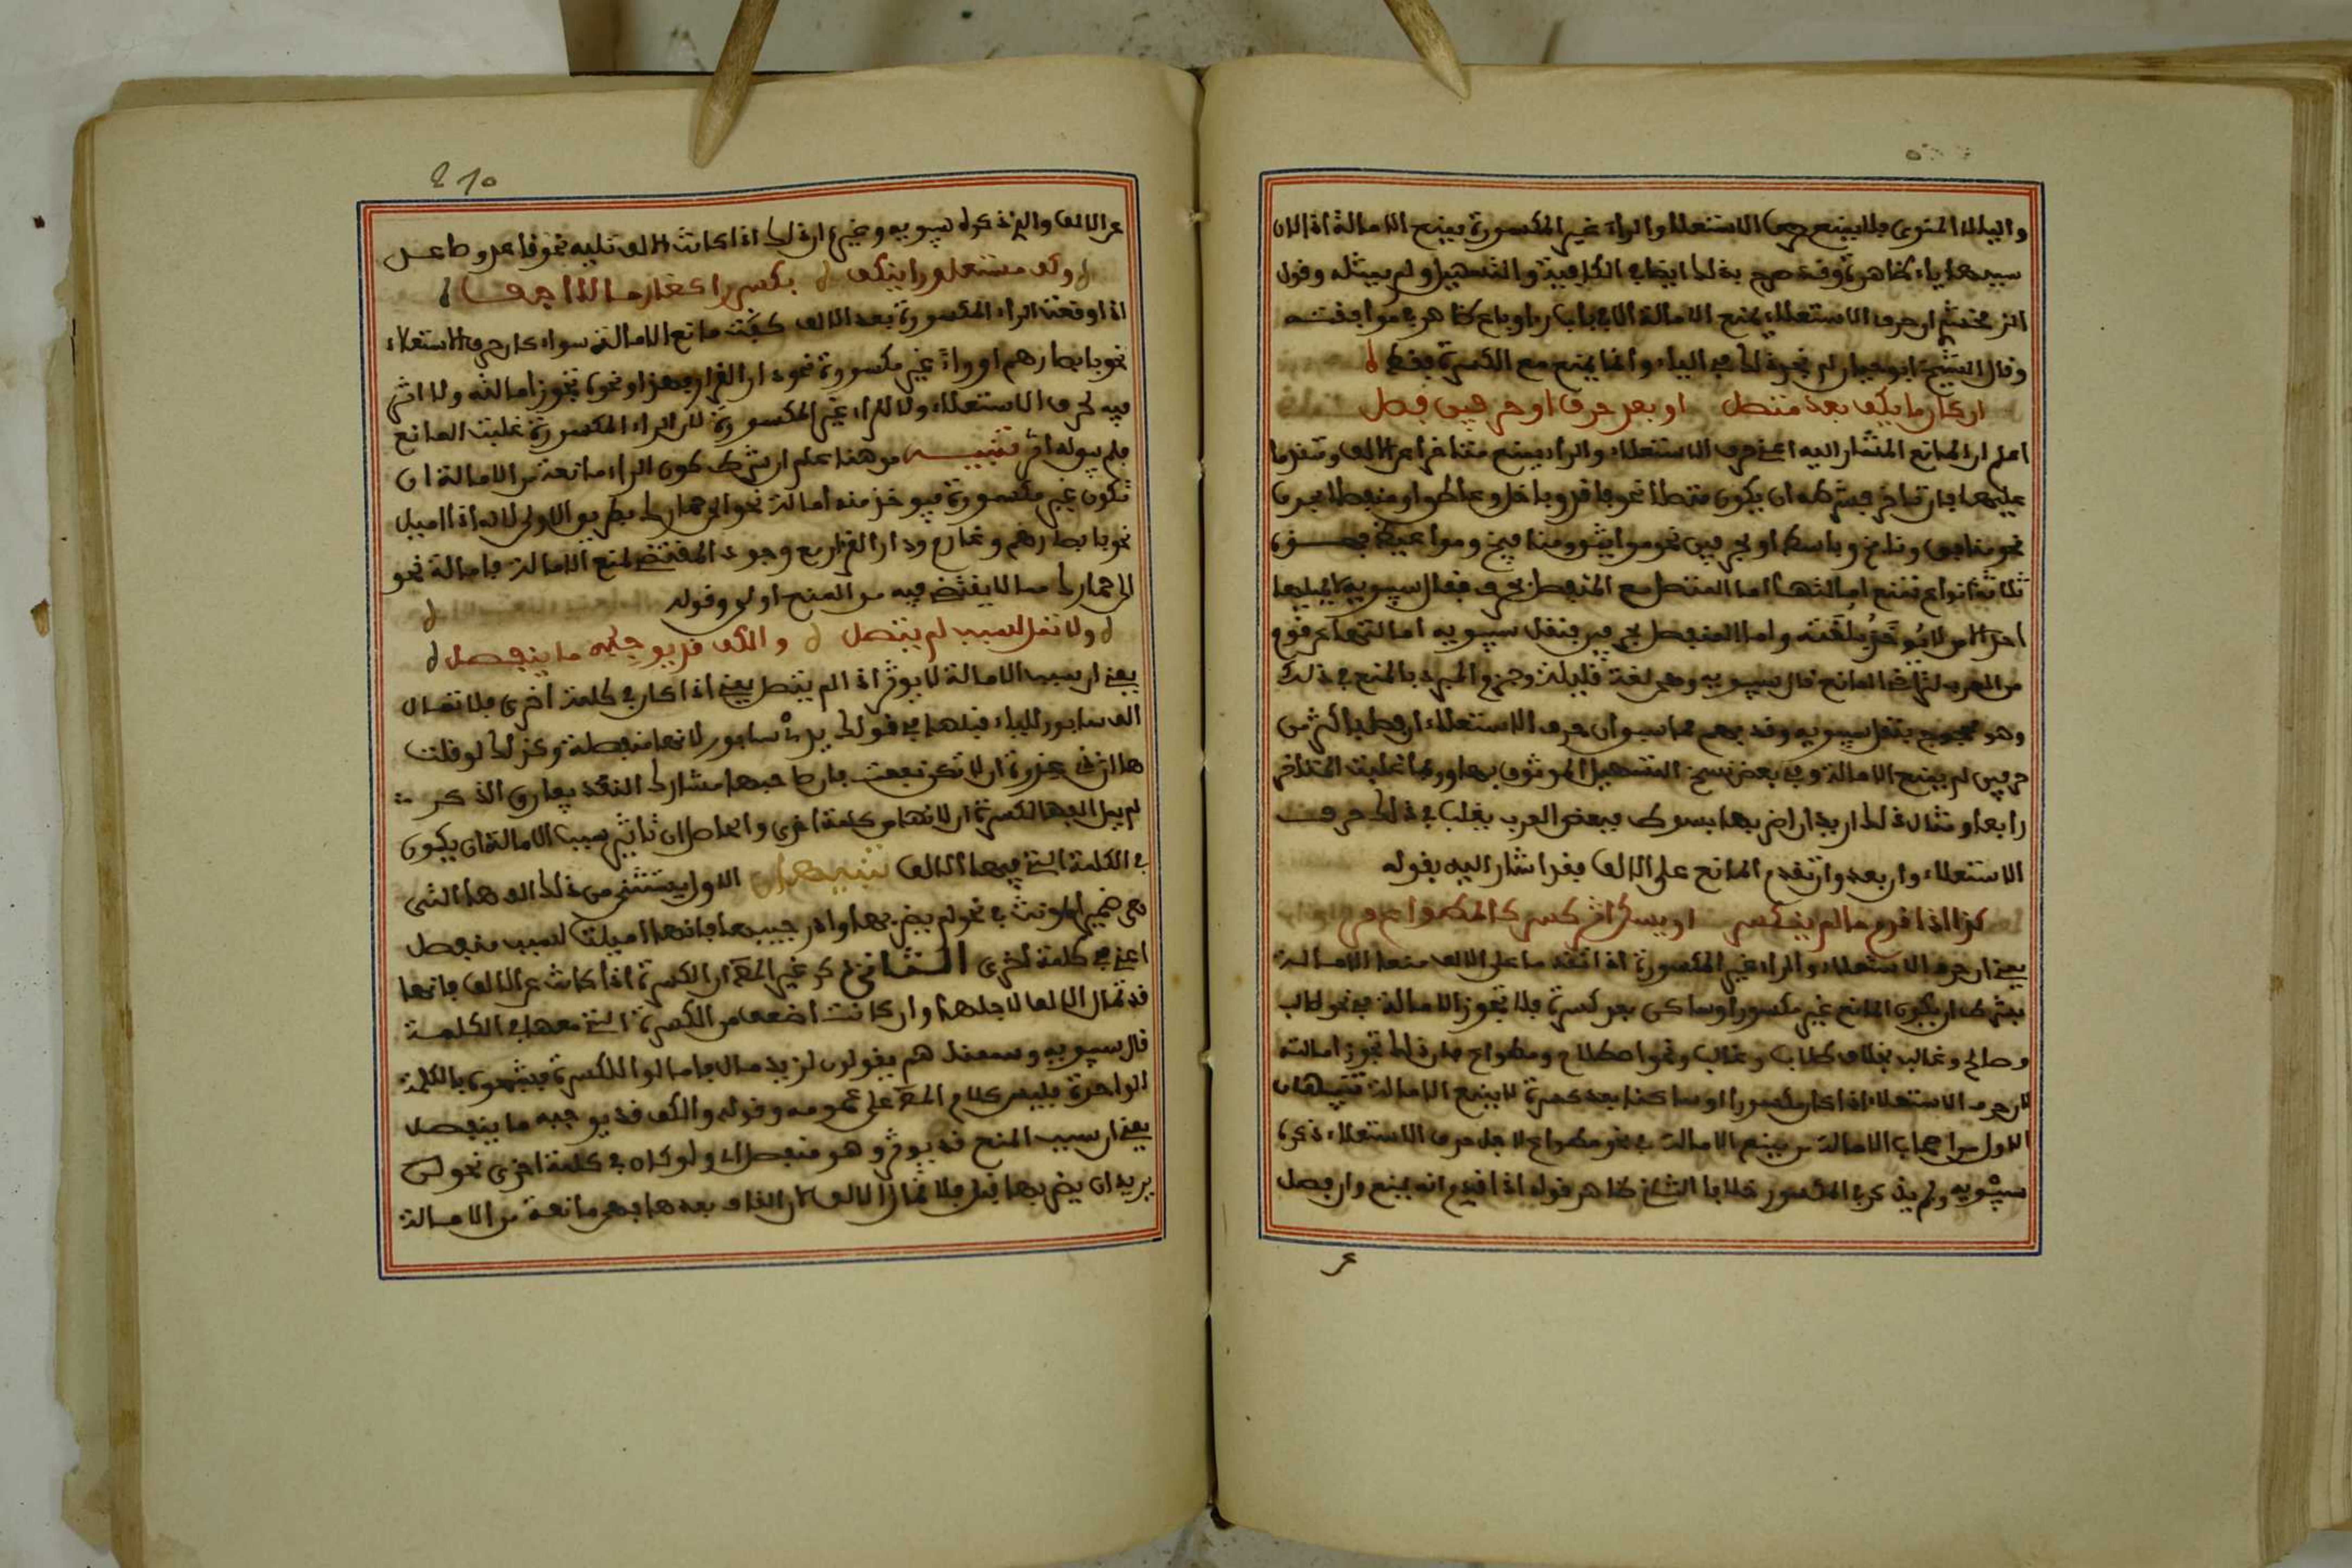 والياء المنوى فلا يمنع حرف الاستعلاء والراء غير المكسورة يمنع الامالة اذا كان
سببها ياء ظاهرة وقد صرح بذلك ايضا في الكافية والتسهيل ولم يمثله وقول
ان حرف الاستعلاء يمنع الامالة
وقال الشيخ ابو حيان لم نجد ذلك في الياء وانما يمنع مع الكسرة فقط
ان كان ما يكف بعد متصل او بعد حرف او حرفين فصل
اعلم ان المانع المشار اليه اعنى حرف الاستعلاء والراء يمنع متاخرا عن الالف ومتقدما
عليها فان تاخر فشرطه ان يكون متصلا نحو فاقد وباخل وعاطل او منفصلا بحرف
نحو منافق ونافخ وباسط او بحرفين نحو مواثيق ومنافيخ ومواعيظ فهذه
ثلاثة انواع تمنع امالتها اما المتصل مع المنفصل بحرف فقال سيبويه لا يميلها
احد الا من لا يوخذ بلغته واما المنفصل بحرفين فنقل سيبويه امالتها عن قوم
من العرب لتراخى المانع قال سيبويه وهى لغة قليلة وجزم المبرد بالمنع في ذلك
وهو محجوج بنقل سيبويه وقد فهم مما سبق ان حرف الاستعلاء ان فصل باكثر من
حرفين لم يمنع الامالة وفي بعض نسخ التسهيل الموثوق بها وربما غلب المتاخر
رابعا ومثال ذلك اريد ان اضربها بسوط فبعض العرب يغلب في ذلك حرف
الاستعلاء وان بعد وان تقدم المانع على الالف فقد اشار اليه بقوله
كذا اذا قدم ما لم ينكسر او يسكن اثر كسر كالمطواع مر
يعنى ان حرف الاستعلاء والراء غير المكسورة اذا تقدما على الالف منعا الامالة
بشرط ان يكون المانع غير مكسور او ساكن بعد كسرة فلا تجوز الامالة في نحو طالب
وصالح وغالب بخلاف طلاب وغلاب ونحو اصلاح ومطواع فان ذلك تجوز امالته
لان حرف الاستعلاء اذا كان مكسورا او ساكنا بعد كسرة لا يمنع الامالة تنبيهان
الاول من اصحاب الامالة من يمنع الامالة في نحو مطواع لاجل حرف الاستعلاء ذكره
سيبويه ولم يذكر في المكسور خلافا الثانى ظاهر قوله اذا قدم انه يمنع وان فصل
عر
210
عن الالف والذى ذكره سيبويه وغيره ان ذلك اذا كانت الالف تليه نحو قاعد وصاعد
وكف مستعل ورا ينكف بكسر را كغارما لا اجفو
اذا وقعت الراء المكسورة بعد الالف كفت مانع الامالة سواء كان حرف الاستعلاء
نحو بابصارهم او راء غير مكسورة نحو دار القرار فهذا ونحوه تجوز امالته ولا اثر
فيه لحرف الاستعلاء ولا للراء غير المكسورة لان الراء المكسورة غلبت المانع
فلم يبق له اثر تنبيه من هنا علم ان شرط كون الراء مانعة من الامالة ان
تكون غير مكسورة فيوخذ منه امالة نحو الى حمارك بطريق الاولى لانه اذا اميل
نحو بابصارهم وغارم ودار القرار مع وجود المقتضى لمنع الامالة فامالة نحو
الى حمارك مما لا يقتضى فيه من المنع اولى وقوله
ولا تمل لسبب لم يتصل والكف قد يوجبه ما ينفصل
يعنى ان سبب الامالة لا يوثر اذا لم يتصل يعنى اذا كان في كلمة اخرى فلا تمال
الف سابور للياء قبلها في قولك يدى سابور لانها منفصلة وكذلك لو قلت
لم يمل الفها لكسرة ان لانها من كلمة اخرى والحاصل ان تاثير سبب الامالة ان يكون
في الكلمة التى فيها الالف تنبيهان الاول يستثنى من ذلك الف ها التى
هى ضمير المونث في نحو لم يضربها وادر جيبها فانها اميلت لسبب منفصل
اعنى في كلمة اخرى الثانى ذكر غير المصنف ان الكسرة اذا كانت عن الالف فانها
قد تمال الالف لاجلها وان كانت اضعف من الكسرة التى معها في الكلمة
قال سيبويه وسمعناهم يقولون لزيد مال فامالوا للكسرة فشبهوه بالكلمة
الواحدة فليس كلام المصنف على عمومه وقوله والكف قد يوجبه ما ينفصل
يعنى ان سبب المنع قد يوثر وهو منفصل اى ولو كان في كلمة اخرى نحو لن
يريد ان يضربها قبل فلا تمال الالف لان القاف بعدها فهى مانعة من الامالة